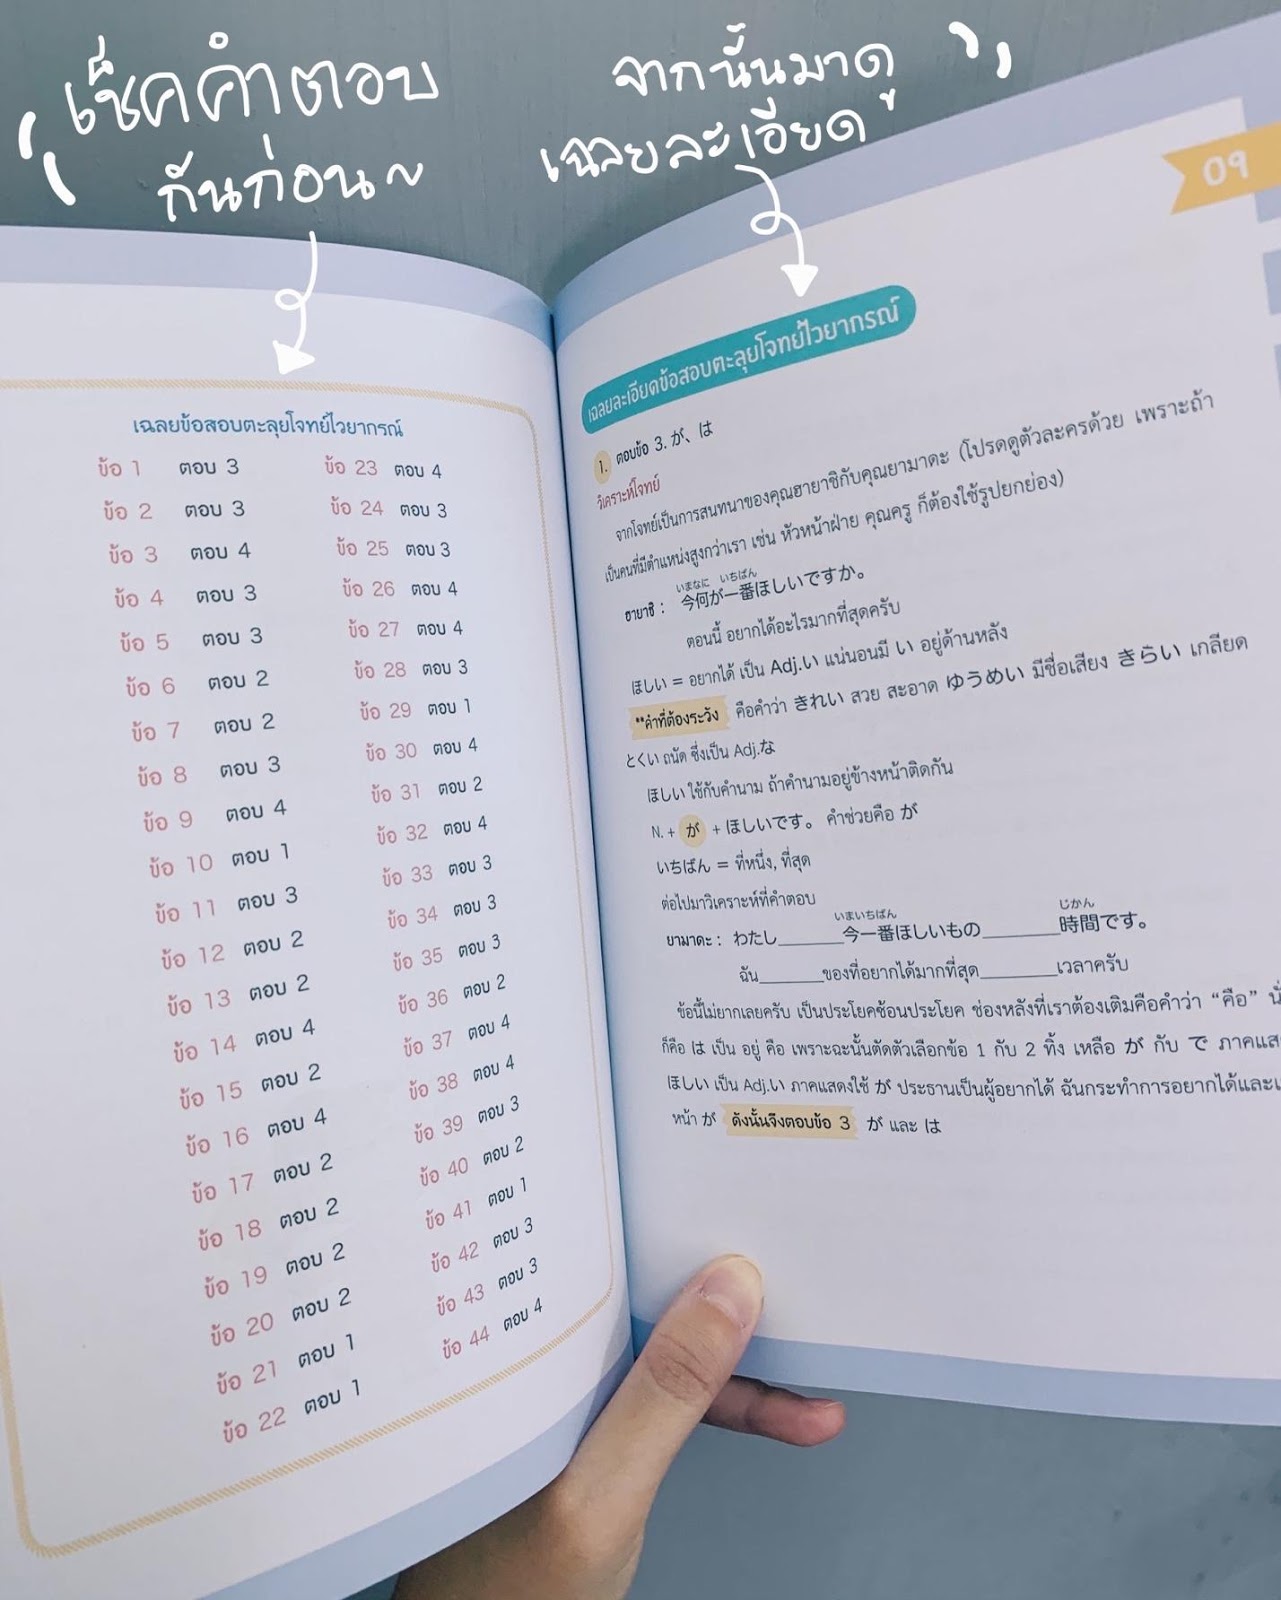 เช็คคำตอบ
กันก่อน~
จากนั้นมาดู
เฉลยละเอียด
เฉลยข้อสอบตะลุยโจทย์ไวยากรณ์
ข้อ 1 ตอบ 3
ข้อ 2 ตอบ 3
ข้อ 3 ตอบ 4
ข้อ 4 ตอบ 3
ข้อ 5 ตอบ 3
ข้อ 6 ตอบ 2
ข้อ 7 ตอบ 2
ข้อ 8 ตอบ 3
ข้อ 9 ตอบ 4
ข้อ 10 ตอบ 1
ข้อ 11 ตอบ 3
ข้อ 12 ตอบ 2
ข้อ 13 ตอบ 2
ข้อ 14 ตอบ 4
ข้อ 15 ตอบ 2
ข้อ 16 ตอบ 4
ข้อ 17 ตอบ 2
ข้อ 18 ตอบ 2
ข้อ 19 ตอบ 2
ข้อ 20 ตอบ 2
ข้อ 21 ตอบ 1
ข้อ 22 ตอบ 1
ข้อ 23 ตอบ 4
ข้อ 24 ตอบ 3
ข้อ 25 ตอบ 3
ข้อ 26 ตอบ 4
ข้อ 27 ตอบ 4
ข้อ 28 ตอบ 3
ข้อ 29 ตอบ 1
ข้อ 30 ตอบ 4
ข้อ 31 ตอบ 2
ข้อ 32 ตอบ 4
ข้อ 33 ตอบ 3
ข้อ 34 ตอบ 3
ข้อ 35 ตอบ 3
ข้อ 36 ตอบ 2
ข้อ 37 ตอบ 4
ข้อ 38 ตอบ 4
ข้อ 39 ตอบ 3
ข้อ 40 ตอบ 2
ข้อ 41 ตอบ 1
ข้อ 42 ตอบ 3
ข้อ 43 ตอบ 3
ข้อ 44 ตอบ 4
09
เฉลยละเอียดข้อสอบตะลุยโจทย์ไวยากรณ์
1. ตอบข้อ 3. が、は
วิเคราะห์โจทย์
จากโจทย์เป็นการสนทนาของคุณฮายาชิกับคุณยามาดะ (โปรดดูตัวละครด้วย เพราะถ้า
เป็นคนที่มีตำแหน่งสูงกว่าเรา เช่น หัวหน้าฝ่าย คุณครู ก็ต้องใช้รูปยกย่อง)
いまなに いちばん
ฮายาชิ : 今何が一番ほしいですか。
ตอนนี้ อยากได้อะไรมากที่สุดครับ
ほしい = อยากได้ เป็น Adj.い แน่นอนมี い อยู่ด้านหลัง
**คำที่ต้องระวัง คือคำว่า きれい สวย สะอาด ゆうめい มีชื่อเสียง きらい เกลียด
とくい ถนัด ซึ่งเป็น Adj.な
ほしい ใช้กับคำนาม ถ้าคำนามอยู่ข้างหน้าติดกัน
N. + が + ほしいです。 คำช่วยคือ が
いちばん = ที่หนึ่ง, ที่สุด
ต่อไปมาวิเคราะห์ที่คำตอบ
いまいちばん じかん
ยามาดะ : わたし______今一番ほしいもの_______時間です。
ฉัน______ของที่อยากได้มากที่สุด_______เวลาครับ
ข้อนี้ไม่ยากเลยครับ เป็นประโยคซ้อนประโยค ช่องหลังที่เราต้องเติมคือคำว่า “คือ”
ก็คือ は เป็น อยู่ คือ เพราะฉะนั้นตัดตัวเลือกข้อ 1 กับ 2 ทิ้ง เหลือ が กับ で
ほしい เป็น Adj.い ภาคแสดงใช้ が ประธานเป็นผู้อยากได้ ฉันกระทำการอยากได้และ
หน้า が ดังนั้นจึงตอบข้อ 3 が และ は